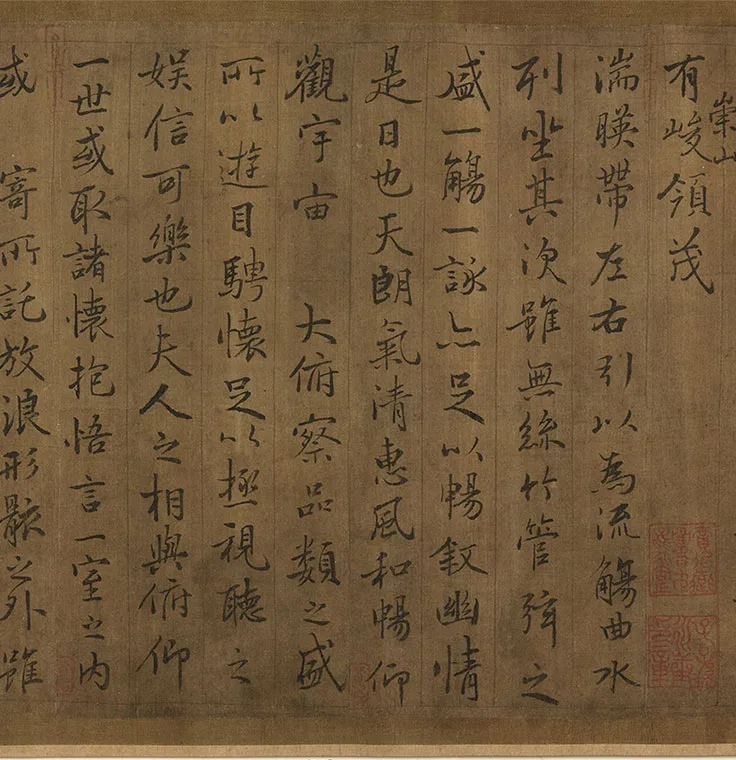 崇山
有峻領茂
湍暎帶左右引以為流觴曲水
列坐其次雖無絲竹管弦之
盛一觴一詠亦足以暢敘幽情
是日也天朗氣清惠風和暢仰
觀宇宙 大俯察品類之盛
所以遊目騁懷足以極視聽之
娛信可樂也夫人之相與俯仰
一世或取諸懷抱悟言一室之內
或 寄所託放浪形骸之外雖